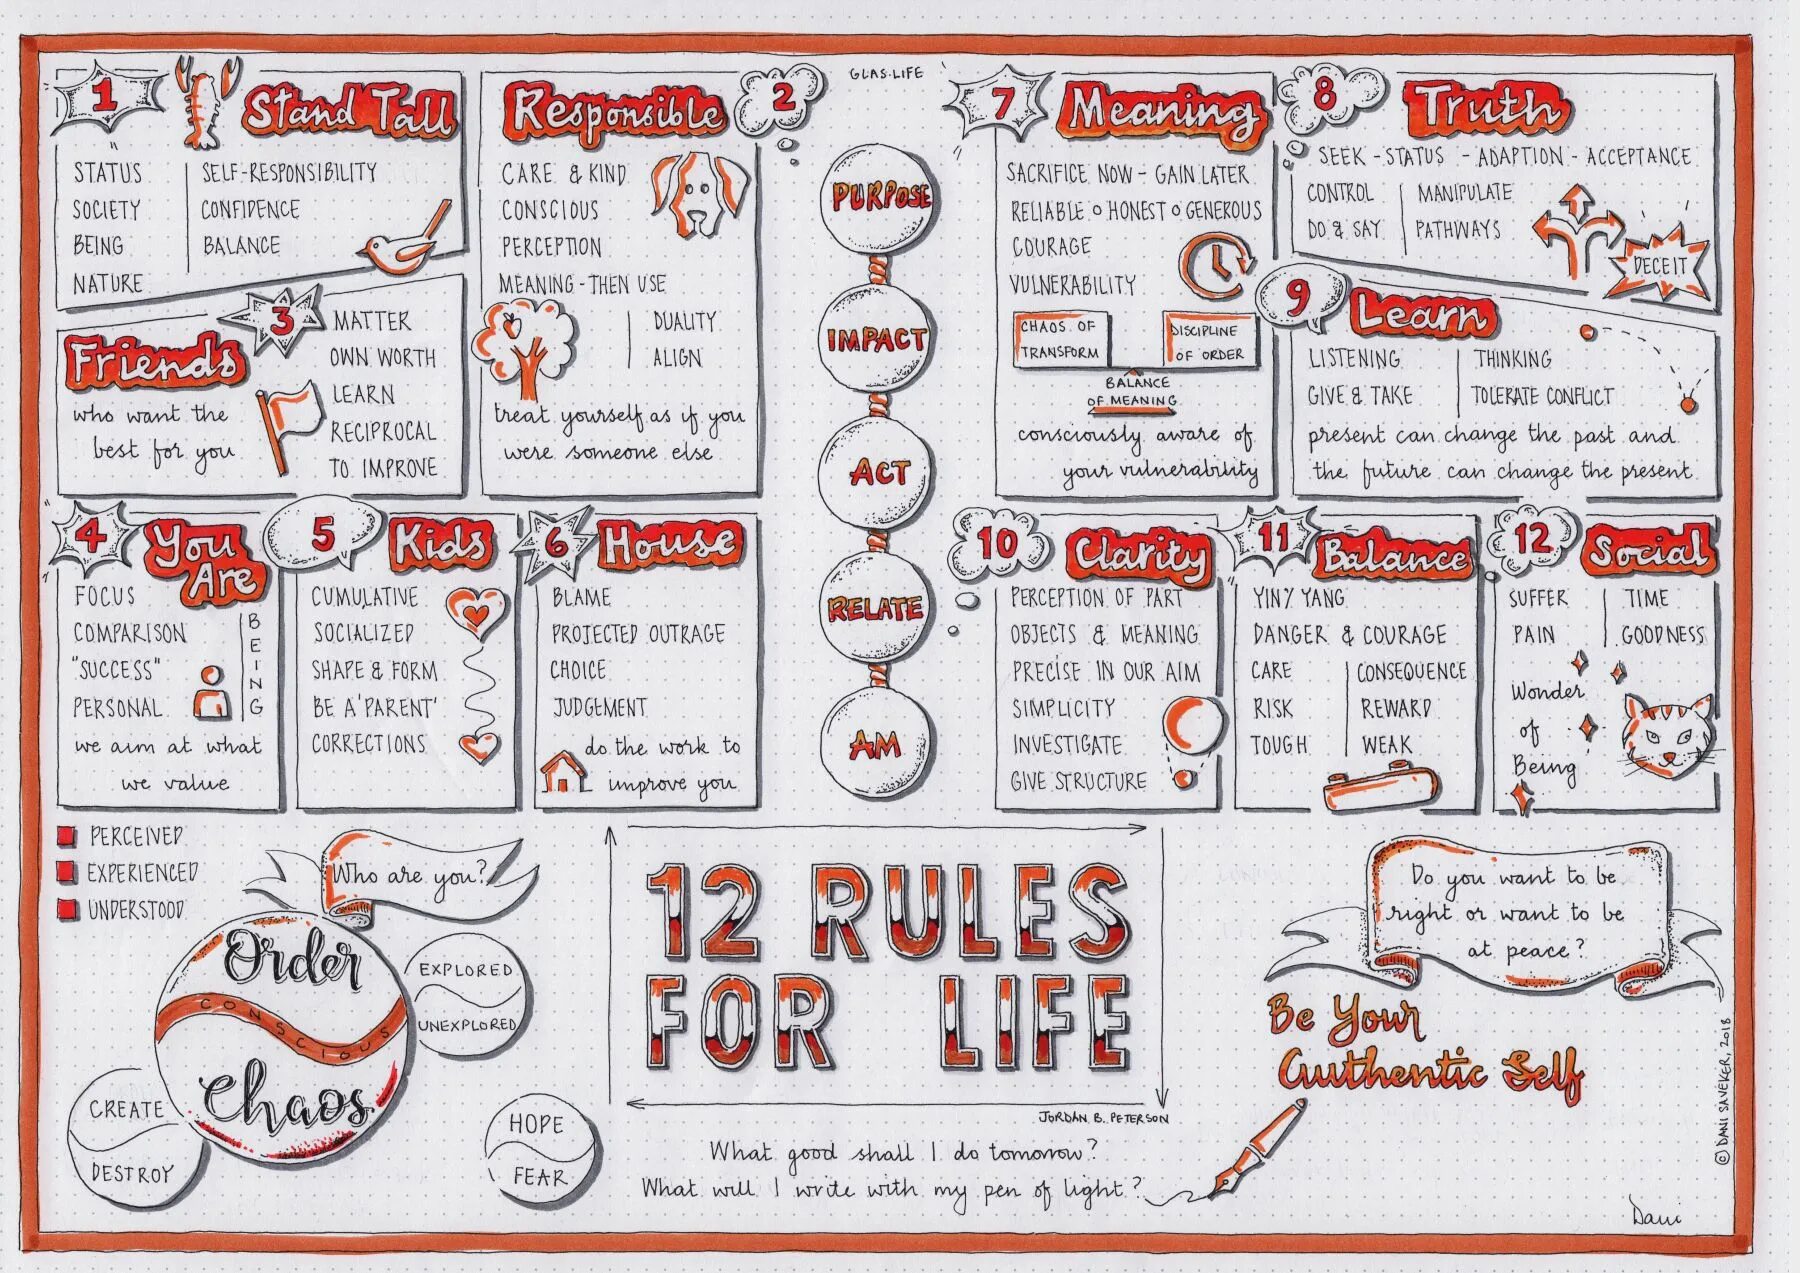 1
Stand Tall
STATUS
SOCIETY
BEING
NATURE
SELF-RESPONSIBILITY
CONFIDENCE
BALANCE
Responsible
2
CARE & KIND
CONSCIOUS
PERCEPTION
MEANING - THEN USE
DUALITY
ALIGN
treat yourself as if you
were someone else
3
Friends
who want the
best for you
MATTER
OWN WORTH
LEARN
RECIPROCAL
TO IMPROVE
4
You
Are
FOCUS
COMPARISON
"SUCCESS"
PERSONAL
BEING
we aim at what
we value
5
Kids
CUMULATIVE
SOCIALIZED
SHAPE & FORM
BE A 'PARENT'
CORRECTIONS
6
House
BLAME
PROJECTED OUTRAGE
CHOICE
JUDGEMENT
do the work to
improve you
GLAS.LIFE
PURPOSE
IMPACT
ACT
RELATE
AM
7
Meaning
SACRIFICE NOW - GAIN LATER
RELIABLE o HONEST o GENEROUS
COURAGE
VULNERABILITY
CHAOS OF
TRANSFORM
DISCIPLINE
OF ORDER
BALANCE
OF MEANING
consciously aware of
your vulnerability
8
Truth
SEEK - STATUS - ADAPTION - ACCEPTANCE
CONTROL
DO & SAY
MANIPULATE
PATHWAYS
DECEIT
9
Learn
LISTENING
GIVE & TAKE
THINKING
TOLERATE CONFLICT
present can change the past and
the future can change the present
10
Clarity
PERCEPTION OF PART
OBJECTS & MEANING
PRECISE IN OUR AIM
SIMPLICITY
INVESTIGATE
GIVE STRUCTURE
11
Balance
YIN/YANG
DANGER & COURAGE
CARE
RISK
TOUGH
CONSEQUENCE
REWARD
WEAK
12
Social
SUFFER
PAIN
TIME
GOODNESS
Wonder
of
Being
PERCEIVED
EXPERIENCED
UNDERSTOOD
Who are you?
Order
CONSCIOUS
Chaos
EXPLORED
UNEXPLORED
CREATE
DESTROY
HOPE
FEAR
12 RULES
FOR LIFE
JORDAN B. PETERSON
What good shall I do tomorrow?
What will I write with my pen of light?
Do you want to be
right or want to be
at peace?
Be Your
Authentic Self
© DANI SAVEKER, 2018
Dani